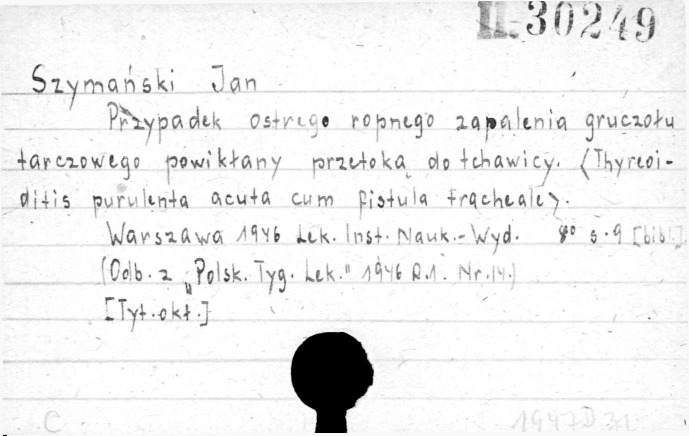 II-30249
Szymański Jan
Przypadek ostrego ropnego zapalenia gruczołu
tarczowego powikłany przetoką do tchawicy. (Thyreoi-
ditis purulenta acuta cum fistula tracheale).
Warszawa 1946 Lek. Inst. Nauk.-Wyd. 8° s. 9 [bibl.]
(Odb. z "Polsk. Tyg. Lek." 1946 R.1. Nr.14.)
[Tyt. okł.]
C 1947 D 31